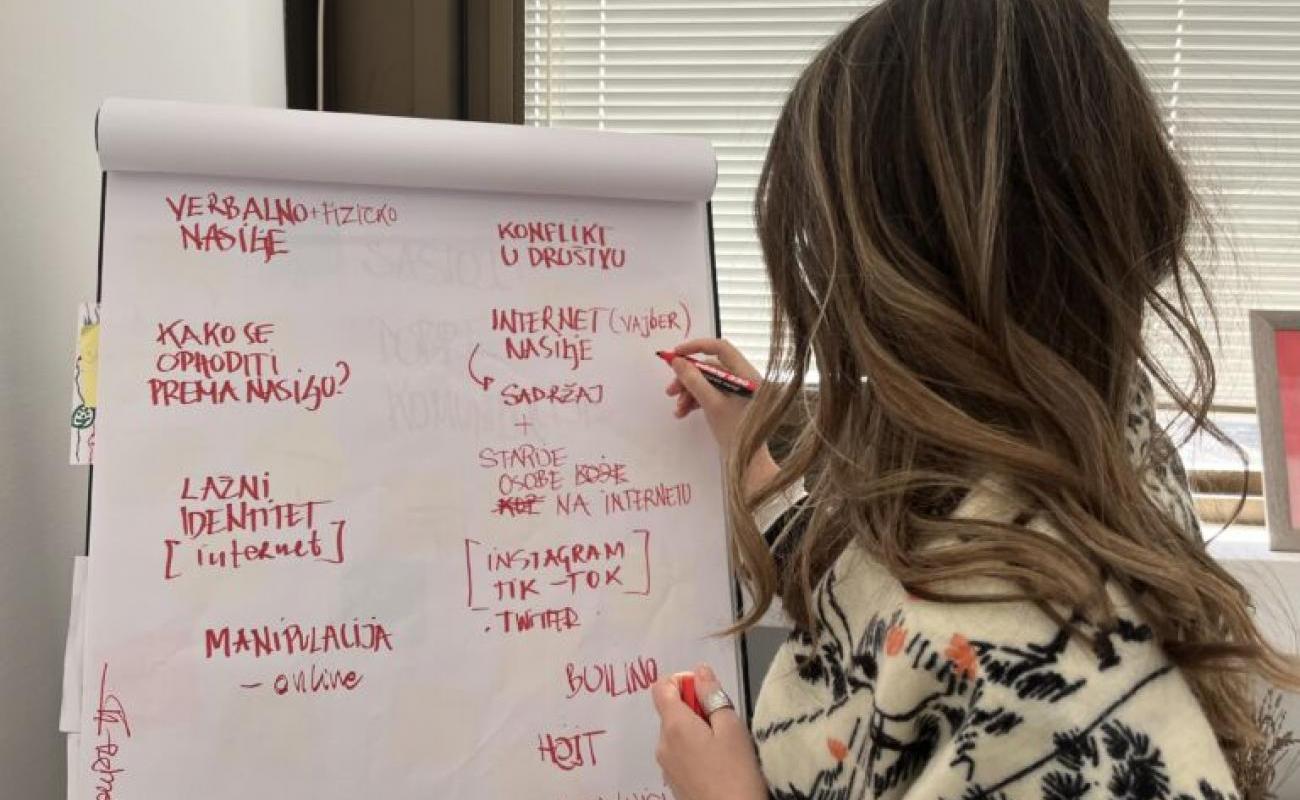 VERBALNO + FIZIČKO
NASILJE
KAKO SE
OPHODITI
PREMA NASILJU?
LAŽNI
IDENTITET
[internet]
MANIPULACIJA
- online
KONFLIKT
U DRUŠTVU
INTERNET (VAJBER)
NASILJE
SADRŽAJ
+
STARIJE
OSOBE KOJE
KOJ NA INTERNETU
[INSTAGRAM
TIK-TOK]
- TWITTER
BULLING
HEJT